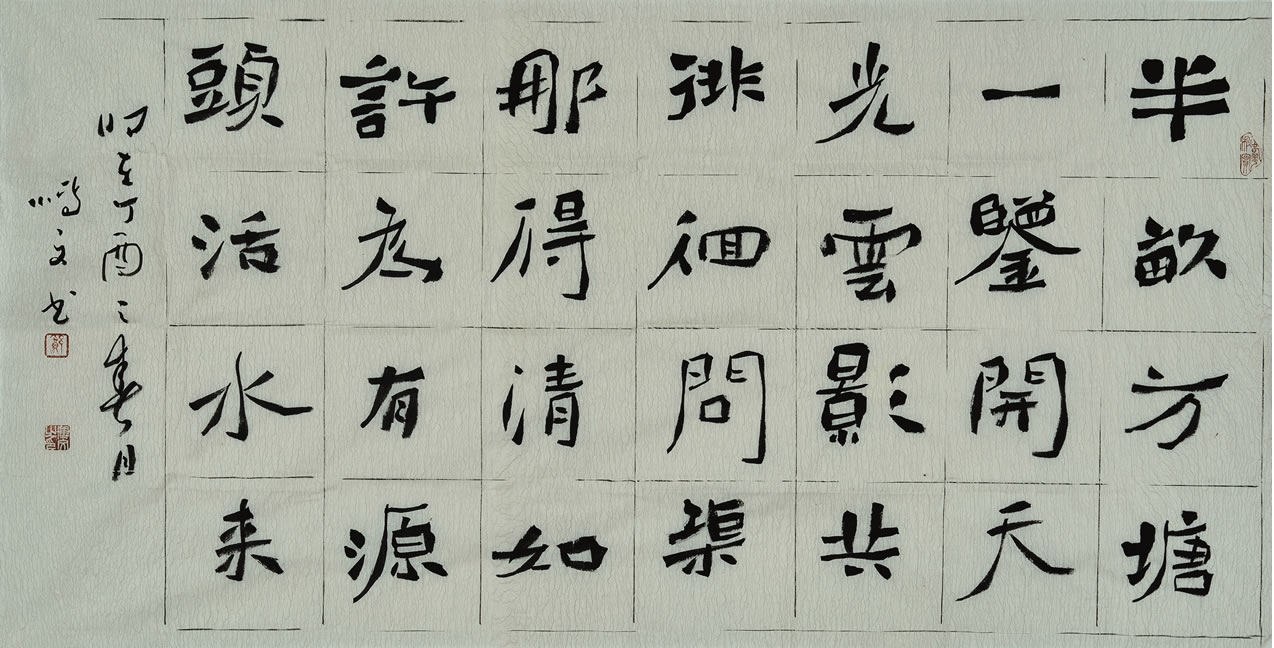 半畝方塘
一鑒開天
光雲影共
徘徊問渠
那得清如
許為有源
頭活水来
时在丁酉之春月
文书